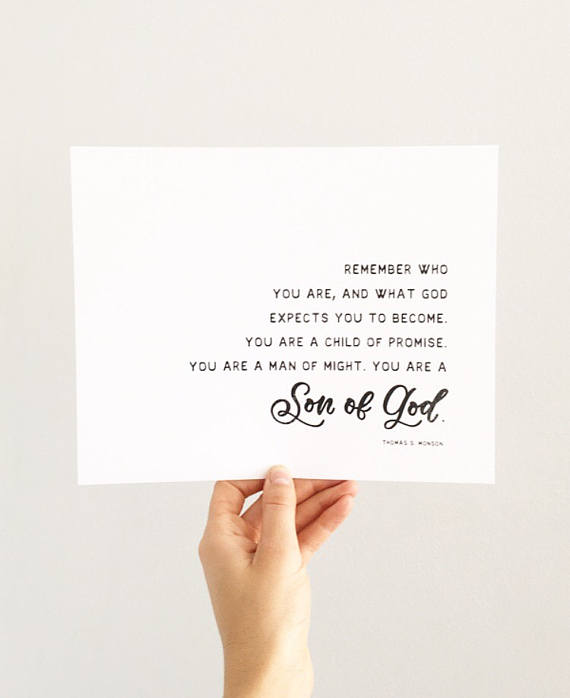 REMEMBER WHO
YOU ARE, AND WHAT GOD
EXPECTS YOU TO BECOME.
YOU ARE A CHILD OF PROMISE.
YOU ARE A MAN OF MIGHT. YOU ARE A
Son of God.
THOMAS S. MONSON